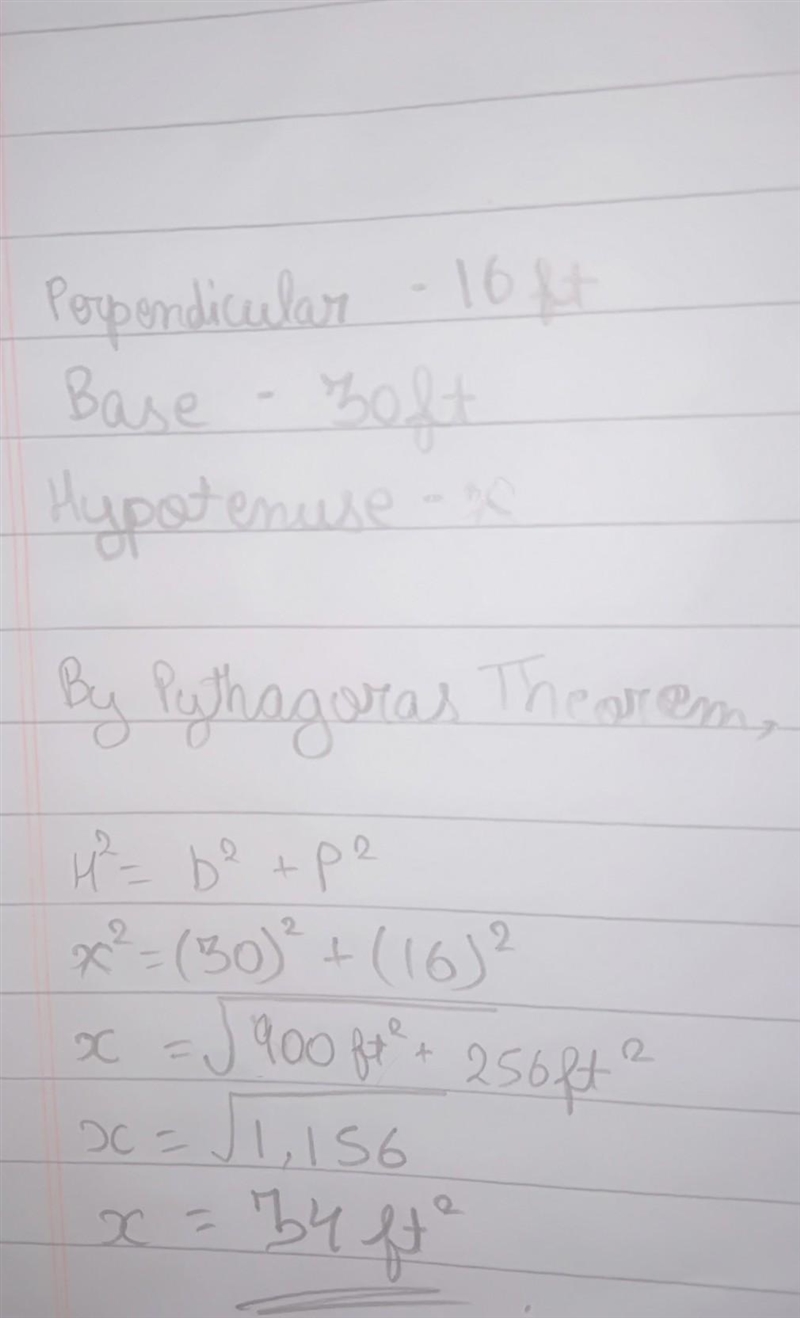 Perpendicular - 16 ft
Base - 30ft
Hypotenuse - x
By Pythagoras Theorem,
H² = b² + p²
x² = (30)² + (16)²
x = √900 ft² + 256ft²
x = √1,156
x = 34 ft²